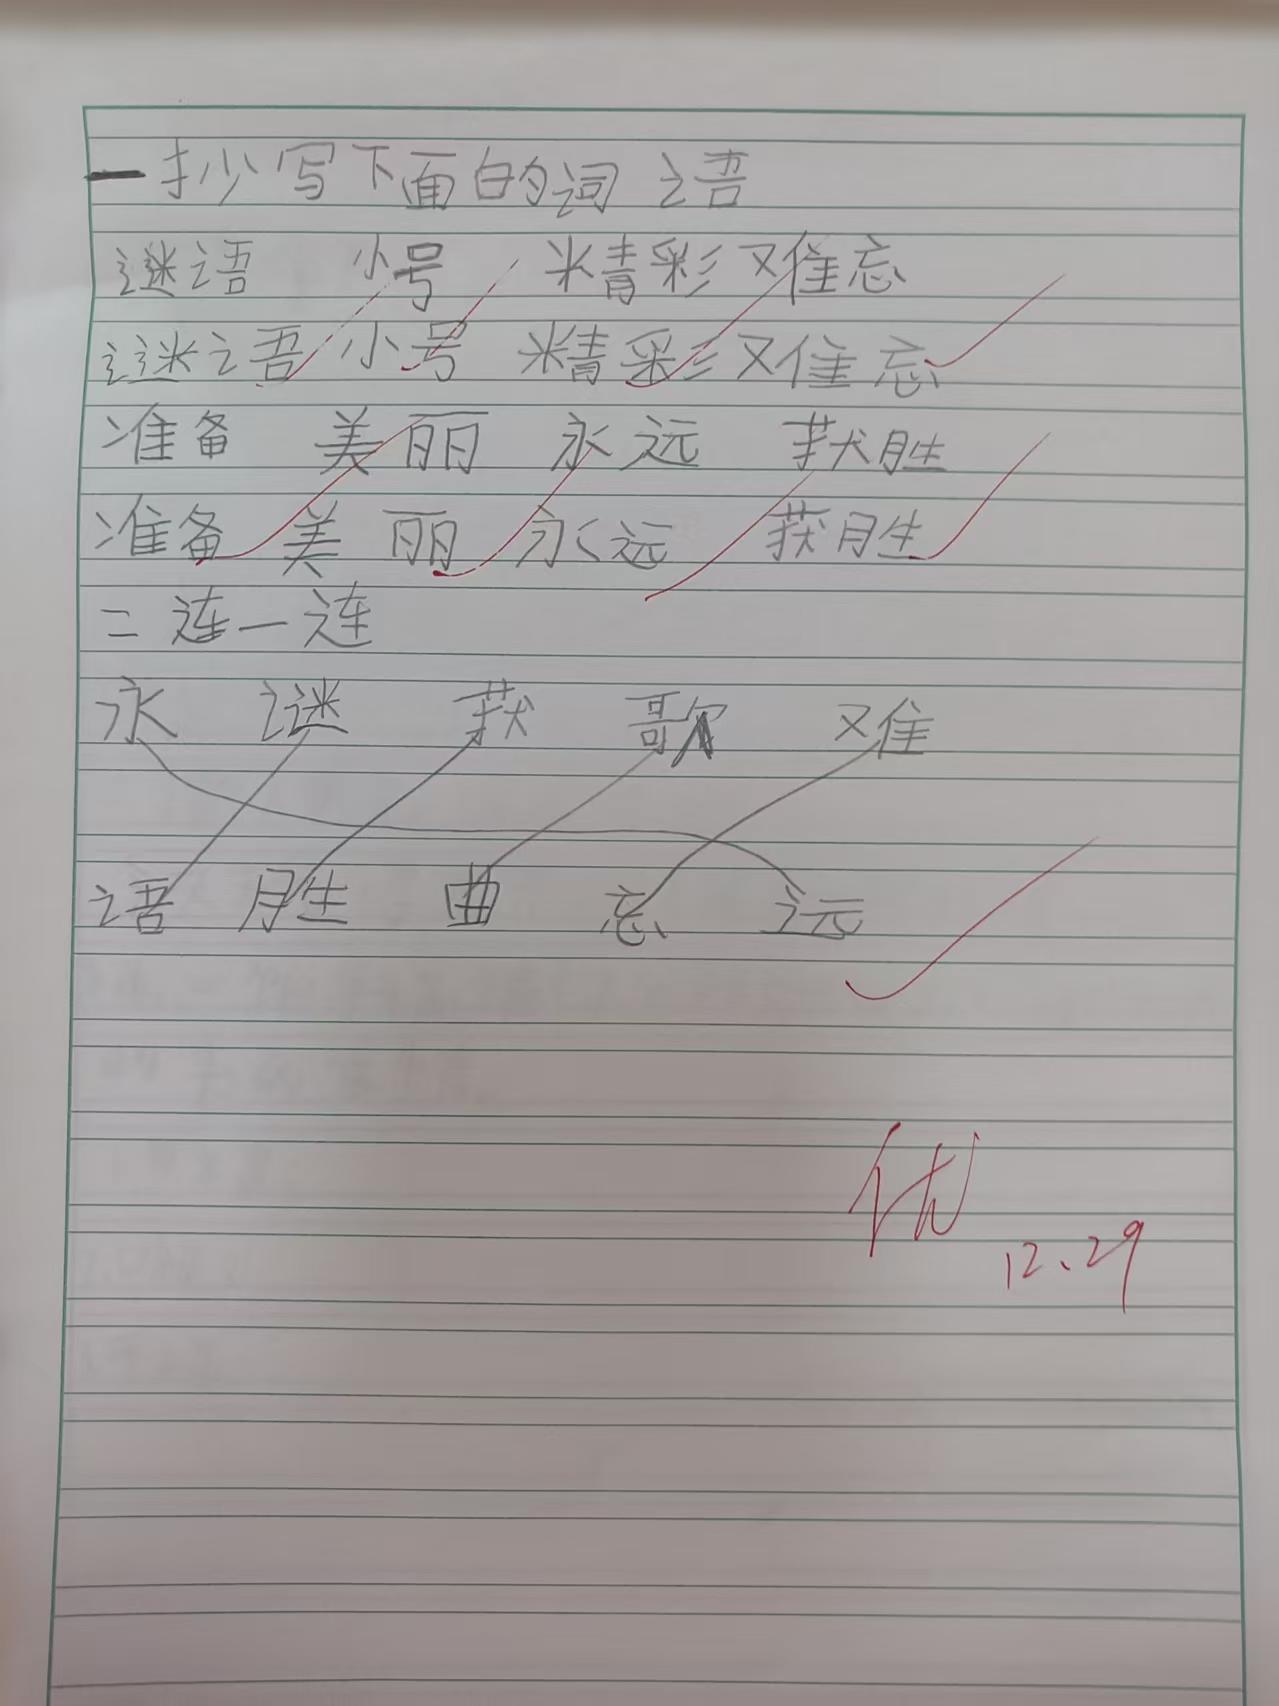 一抄写下面的词语
谜语 小号 精彩 难忘
谜语 小号 精彩 难忘
准备 美丽 永远 获胜
准备 美丽 永远 获胜
二 连一连
永 谜 获 歌 难
语 胜 曲 忘 远
优
12.29